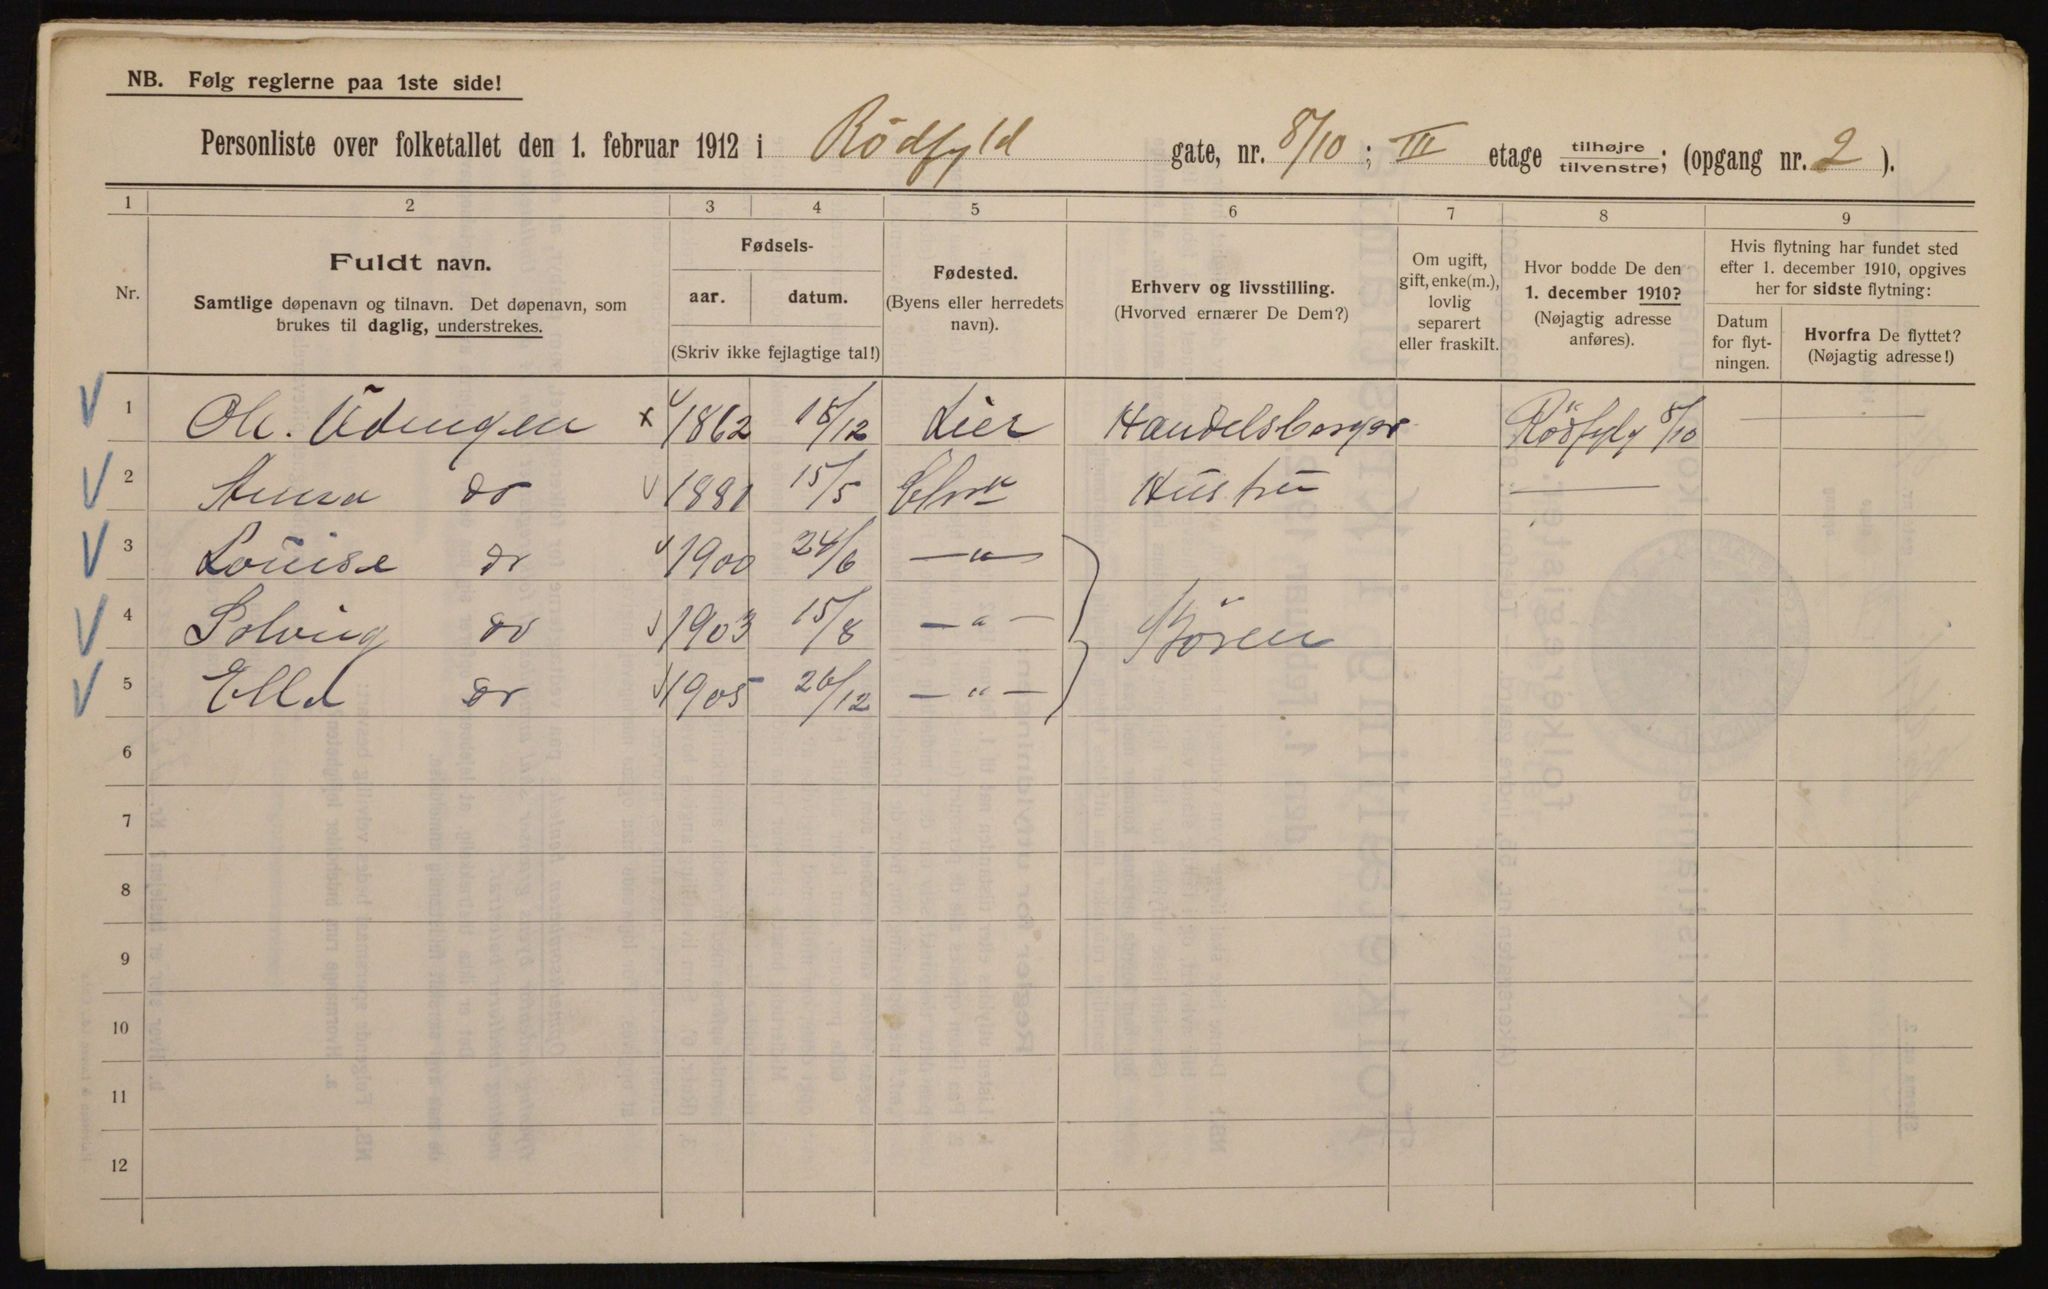 NB. Følg reglerne paa 1ste side!
Personliste over folketallet den 1. februar 1912 i Rödfyld gate, nr. 8/10; III etage tilhøjre/tilvenstre; (opgang nr. 2).
1 2 3 4 5 6 7 8 9
Nr.
Fuldt navn.
Samtlige døpenavn og tilnavn. Det døpenavn, som
brukes til daglig, understrekes.
Fødsels-
aar. datum.
(Skriv ikke fejlagtige tal!)
Fødested.
(Byens eller herredets
navn).
Erhverv og livsstilling.
(Hvorved ernærer De Dem?)
Om ugift,
gift, enke(m.),
lovlig
separert
eller fraskilt.
Hvor bodde De den
1. december 1910?
(Nøjagtig adresse
anføres).
Hvis flytning har fundet sted
efter 1. december 1910, opgives
her for sidste flytning:
Datum
for flyt-
ningen.
Hvorfra De flyttet?
(Nøjagtig adresse!)
1 Ole. x 1862 18/12 Lier Handelsborger Rödfyly 8/10 —
2 Anna do 1881 15/5 Hustru —
3 Louise do 1900 24/6 — " —
4 Solveig do 1903 15/8 — " — Bören
5 Ella do 1905 26/12 — " —
6
7
8
9
10
11
12